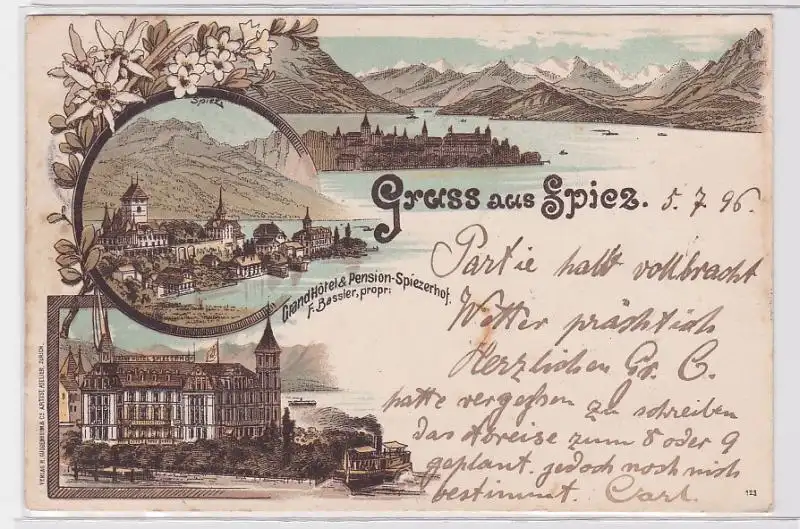 Spiez
Gruss aus Spiez. 5. 7 96
Grand Hôtel & Pension-Spiezerhof.
F. Bassler, propr:
Partie halb vollbracht
Wetter prächtich
Herzlichen Gr. C.
hatte vergessen zu schreiben
das Abreise zum 8 oder 9
geplant. jedoch noch nich
bestimmt. Carl.
123